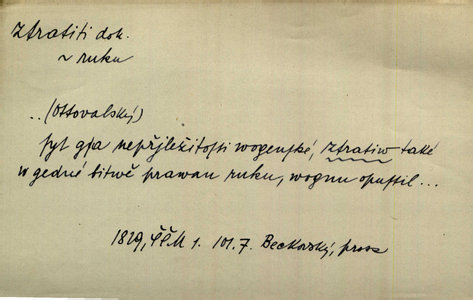 Ztratiti dok.
~ ruku
..(Ottovalský)
syt gsa nepřjležitosti wogenské, ztratiw také
w gedné bitwě prawau ruku, wognu opustil...
1829, ČČM 1. 101.7. Beckovský, prosa